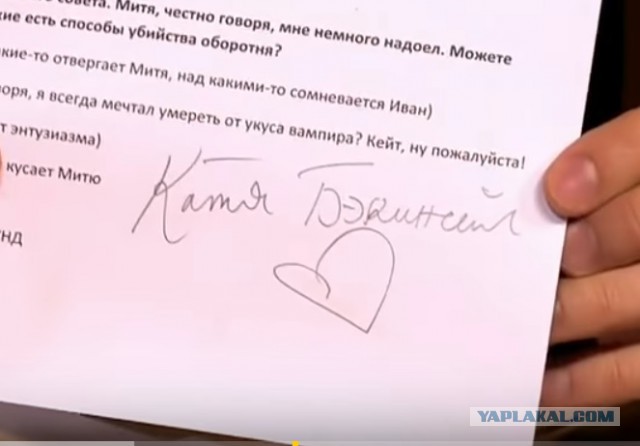 совета. Митя, честно говоря, мне немного надоел. Можете
кие есть способы убийства оборотня?
кие-то отвергает Митя, над какими-то сомневается Иван)
оря, я всегда мечтал умереть от укуса вампира? Кейт, ну пожалуйста!
т энтузиазма)
кусает Митю
Катя Бэкинсейл
НД
YAPLAKAL.COM